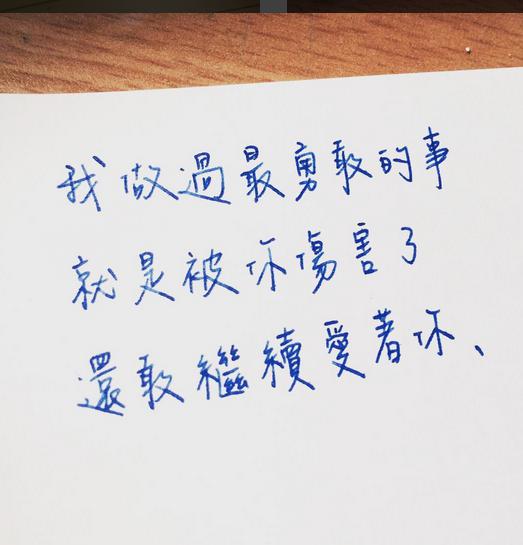 我做過最勇敢的事
就是被你傷害了
還敢繼續愛著你、